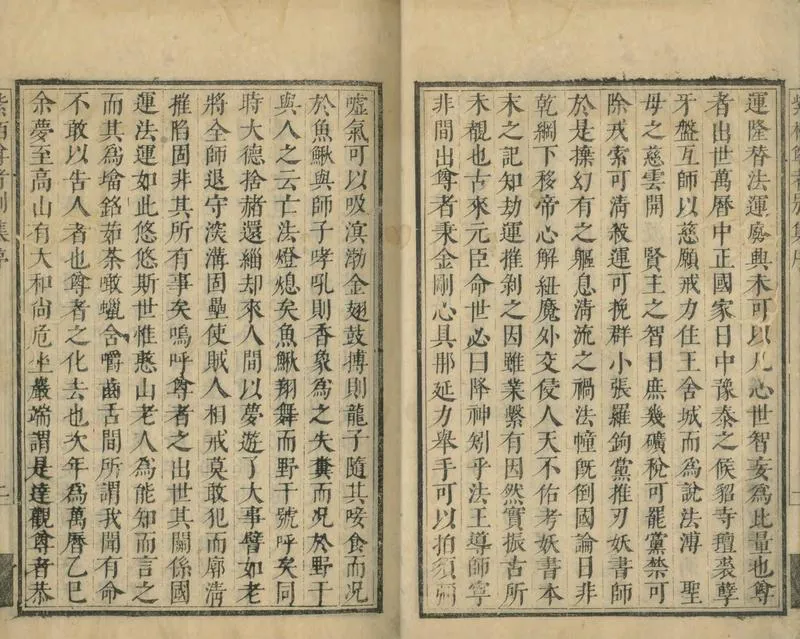 運隆替法運廢興未可以凡心世智妄爲此量也尊
者出世萬曆中正國家日中豫泰之候貂寺璫裘孽
牙盤互師以慈願戒力住王舍城而爲說法溥 聖
母之慈雲開 賢王之智日庶幾礦稅可罷黨禁可
除戎索可清殺運可挽群小張羅鉤黨推刃妖書師
於是撫幻有之軀息清流之禍法幢旣倒國論日非
乾綱下移帝心解紐魔外交侵人天不佑考妖書本
末之記知劫運推剝之因雖業繫有因然實振古所
未覯也古來元臣命世必曰降神矧乎法王導師寧
非間出尊者秉金剛心具那延力舉手可以拍須彌
噓氣可以吸溟渤金翅鼓搏則龍子隨其唼食而況
於魚鰍與師子哮吼則香象爲之失糞而況於野干
與人之云亡法燈熄矣魚鰍翔舞而野干號呼矣同
時大德捨赭還緇却來人間以夢遊了大事譬如老
將全師退守溝固壘使賊人相戒莫敢犯而廓清
摧陷固非其所有事矣嗚呼尊者之出世其關係國
運法運如此悠悠斯世惟憨山老人爲能知而言之
而其爲塔銘茹荼噉蠟含嚼齒舌間所謂我聞有命
不敢以告人者也尊者之化去也次年爲萬曆乙巳
余夢至高山有大和尚危坐嚴端謂是達觀尊者恭